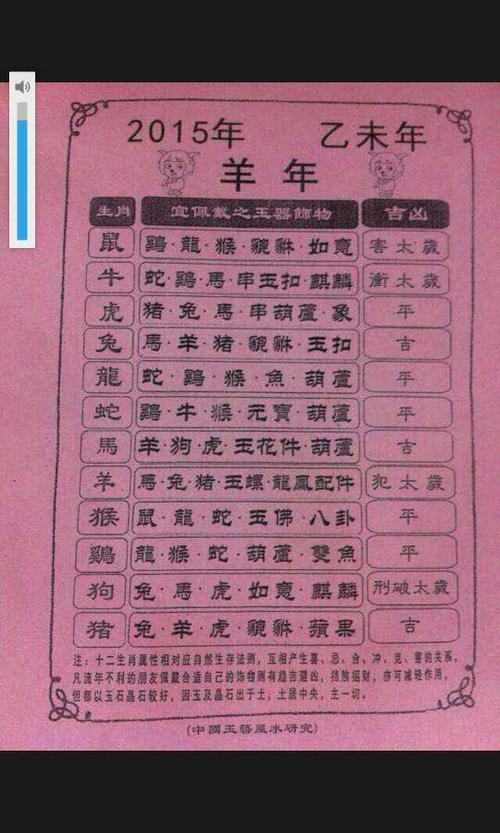 2015年 乙未年
羊年
生肖 宜佩戴之玉器飾物 吉凶
鼠 鷄·龍·猴·貔貅·如意 害太歲
牛 蛇·鷄·馬·串玉扣·麒麟 衝太歲
虎 豬·兔·馬·串葫蘆·象 平
兔 馬·羊·豬·貔貅·玉扣 吉
龍 蛇·鷄·猴·魚·葫蘆 平
蛇 鷄·牛·猴·元寶·葫蘆 平
馬 羊·狗·虎·玉花件·葫蘆 吉
羊 馬·兔·豬·玉螺·龍鳳配件 犯太歲
猴 鼠·龍·蛇·玉佛·八卦 平
鷄 龍·猴·蛇·葫蘆·雙魚 平
狗 兔·馬·虎·如意·麒麟 刑破太歲
猪 兔·羊·虎·貔貅·蘋果 吉
注：十二生肖属性相对应自然生存法则，互相产生喜、忌、合、冲、克、害的关系。
凡流年不利的朋友佩戴合适自己的饰物则有趋吉避凶，挡煞招财，亦可减轻作用，
但都以玉石晶石较好，因玉及晶石出于土，土居中央，主一切。
(中國玉藝風水研究)